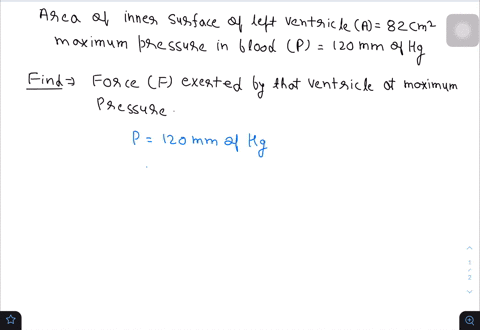 Area of inner surface of left ventricle (A) = 82 cm²
maximum pressure in blood (P) = 120 mm of Hg
Find ⇒ Force (F) exerted by that ventricle at maximum
Pressure.
P = 120 mm of Hg
1
2